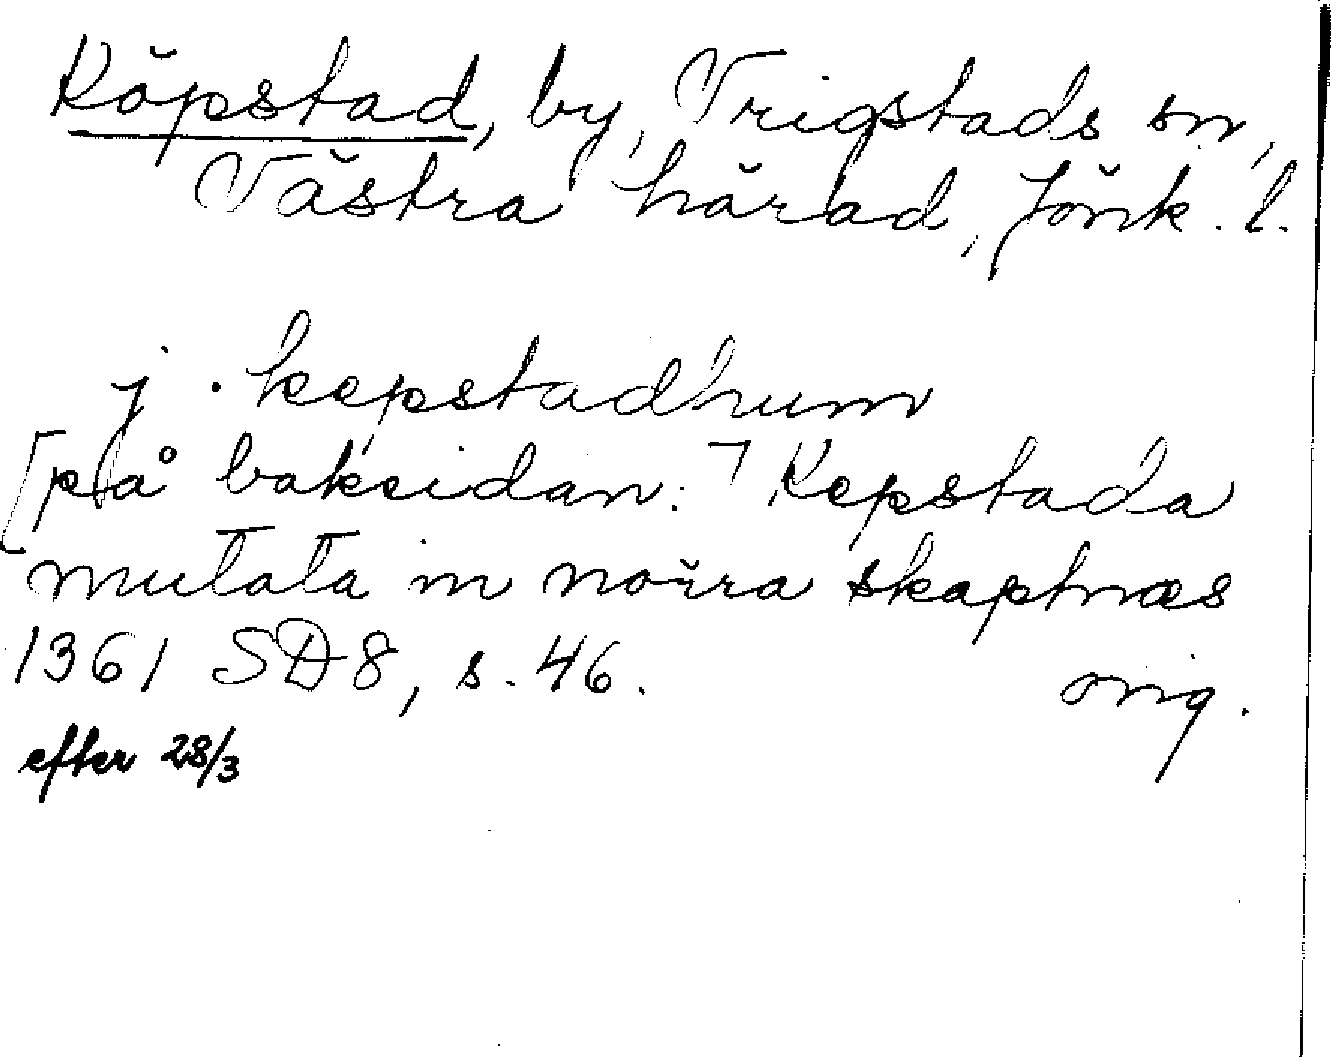 Köpstad, by, Vrigstads sn,
Västra härad, Jönk. l.
j. kepstadhum
[på baksidan:] Kepstada
mutata in norra skaptnæs
1361 SD 8, s. 46. orig.
efter 28/3